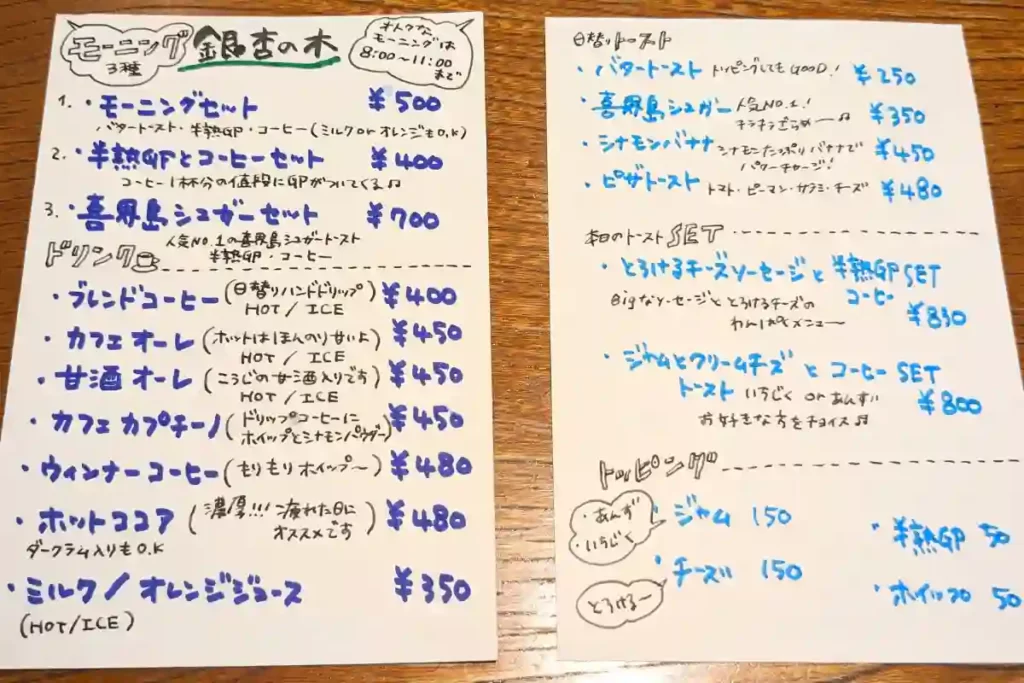 モーニング
3種
銀杏の木
オトクな
モーニングは
8:00〜11:00
まで
1.・モーニングセット ¥500
バタートースト・半熟GP・コーヒー(ミルク or オレンジもO.K)
2.・半熟GPとコーヒーセット ¥400
コーヒー1杯分の値段にGPがついてくる♫
3.・喜界島シュガーセット ¥700
人気NO.1の喜界島シュガートースト
半熟GP・コーヒー
ドリンク
・ブレンドコーヒー(日替りハンドドリップ) ¥400
HOT / ICE
・カフェオーレ(ホットはほんのり甘いよ) ¥450
HOT / ICE
・甘酒オーレ(こうじの甘酒入りです) ¥450
HOT / ICE
・カフェカプチーノ(ドリップコーヒーに
ホイップとシナモンパウダー) ¥450
・ウィンナーコーヒー(もりもりホイップ〜) ¥480
・ホットココア(濃厚!!! 疲れた日に
オススメです) ¥480
ダークラム入りもO.K
・ミルク/オレンジジュース ¥350
(HOT/ICE)
日替りトースト
・バタートースト トッピングしてもGOOD! ¥250
・喜界島シュガー 人気NO.1! ¥350
キラキラざらめー♫
・シナモンバナナ シナモンたっぷりバナナで ¥450
パワーチャージ!
・ピザトースト トマト・ピーマン・サラミ・チーズ ¥480
本日のトーストSET
・とろけるチーズソーセージと半熟GP SET
コーヒー
Bigなソーセージととろけるチーズの ¥830
わんぱくメニュー
・ジャムとクリームチーズ と コーヒー SET
トースト いちじく or あんず ¥800
お好きな方をチョイス♫
トッピング
・あんず
・いちじく
・ジャム 150
・半熟GP 50
・チーズ 150
とろけるー
・ホイップ 50